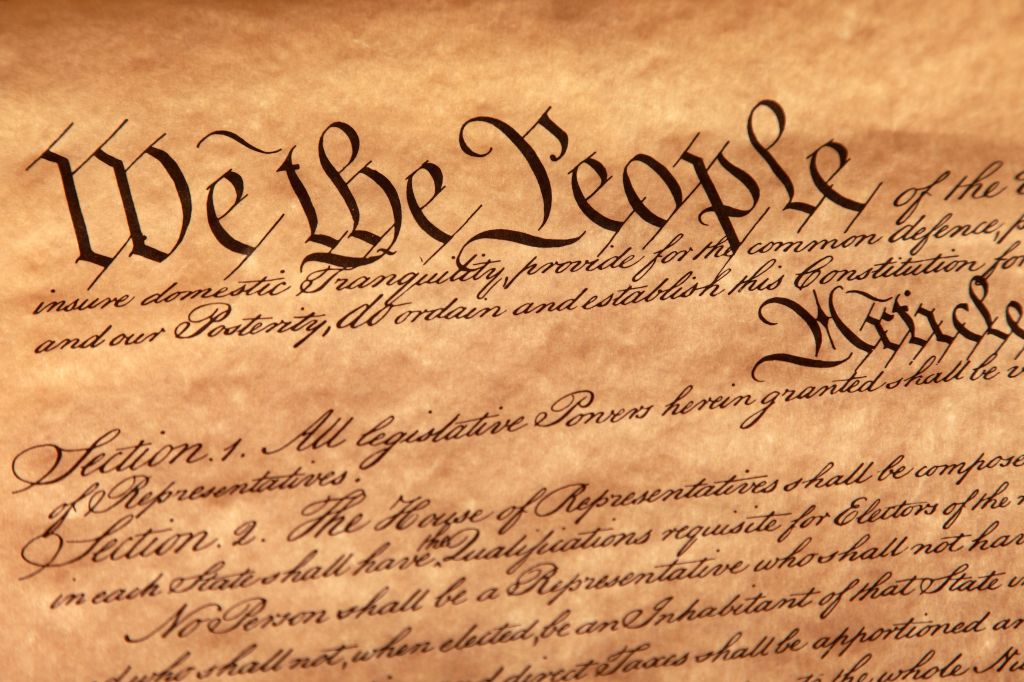 We the People of the
insure domestic Tranquility, provide for the common defence,
and our Posterity, do ordain and establish this Constitution for
Article
Section. 1. All legislative Powers herein granted shall be
of Representatives.
Section. 2. The House of Representatives shall be compose
in each State shall have the Qualifications requisite for Electors of the
No Person shall be a Representative who shall not hav
d who shall not, when elected, be an Inhabitant of that State
and direct Taxes shall be apportioned
the whole Nu